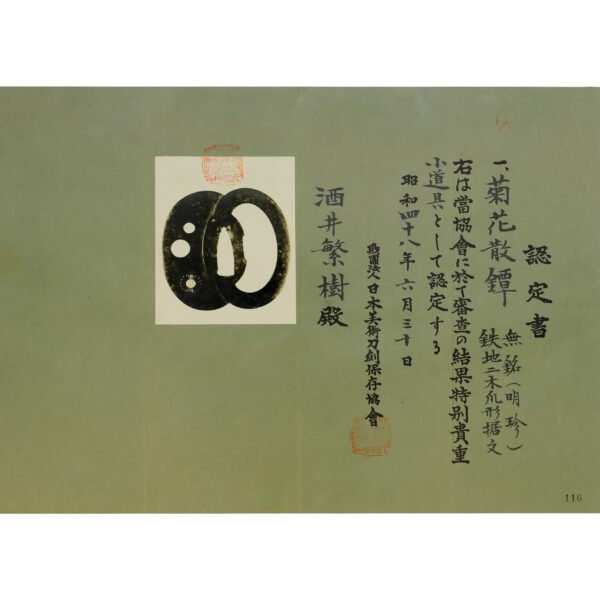 認定書
一、菊花散鐔
無銘(明珍)
鉄地二木瓜形据文
右は當協會に於て審査の結果特別貴重
小道具として認定する
昭和四十八年六月三十日
財團法人日本美術刀剣保存協會
酒井繁樹殿
116